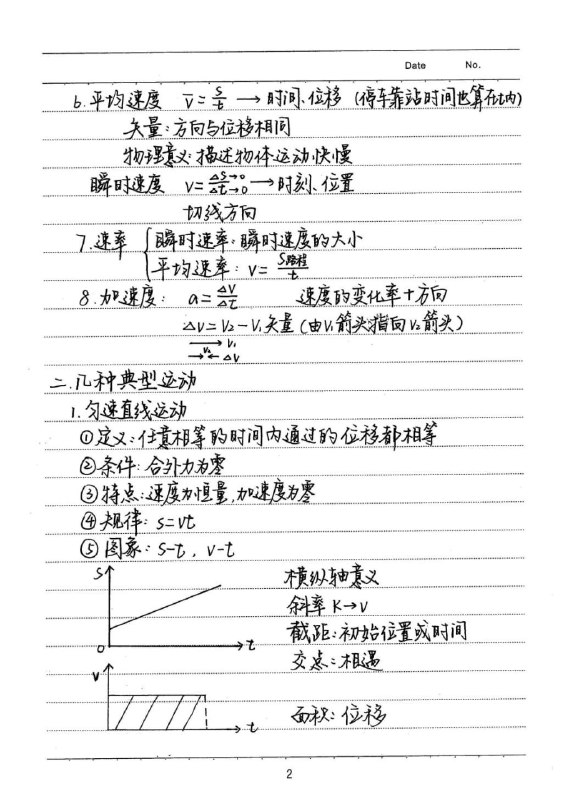 Date No.
6.平均速度 v̄=s/t → 时间、位移 (停车靠站时间也算在t内)
矢量:方向与位移相同
物理意义:描述物体运动快慢
瞬时速度 v=Δs→0/Δt→0 → 时刻、位置
切线方向
7.速率 { 瞬时速率:瞬时速度的大小
平均速率:v=s路程/t
8.加速度: a=Δv/Δt 速度的变化率+方向
Δv=v₂-v₁矢量(由v₁箭头指向v₂箭头)
v₁
v₂ Δv
二.几种典型运动
1.匀速直线运动
①定义:任意相等的时间内通过的位移都相等
②条件:合外力为零
③特点:速度为恒量,加速度为零
④规律:s=vt
⑤图象:s-t,v-t
s 横纵轴意义
斜率K→v
截距:初始位置或时间
0 t 交点:相遇
v
面积:位移
t
2